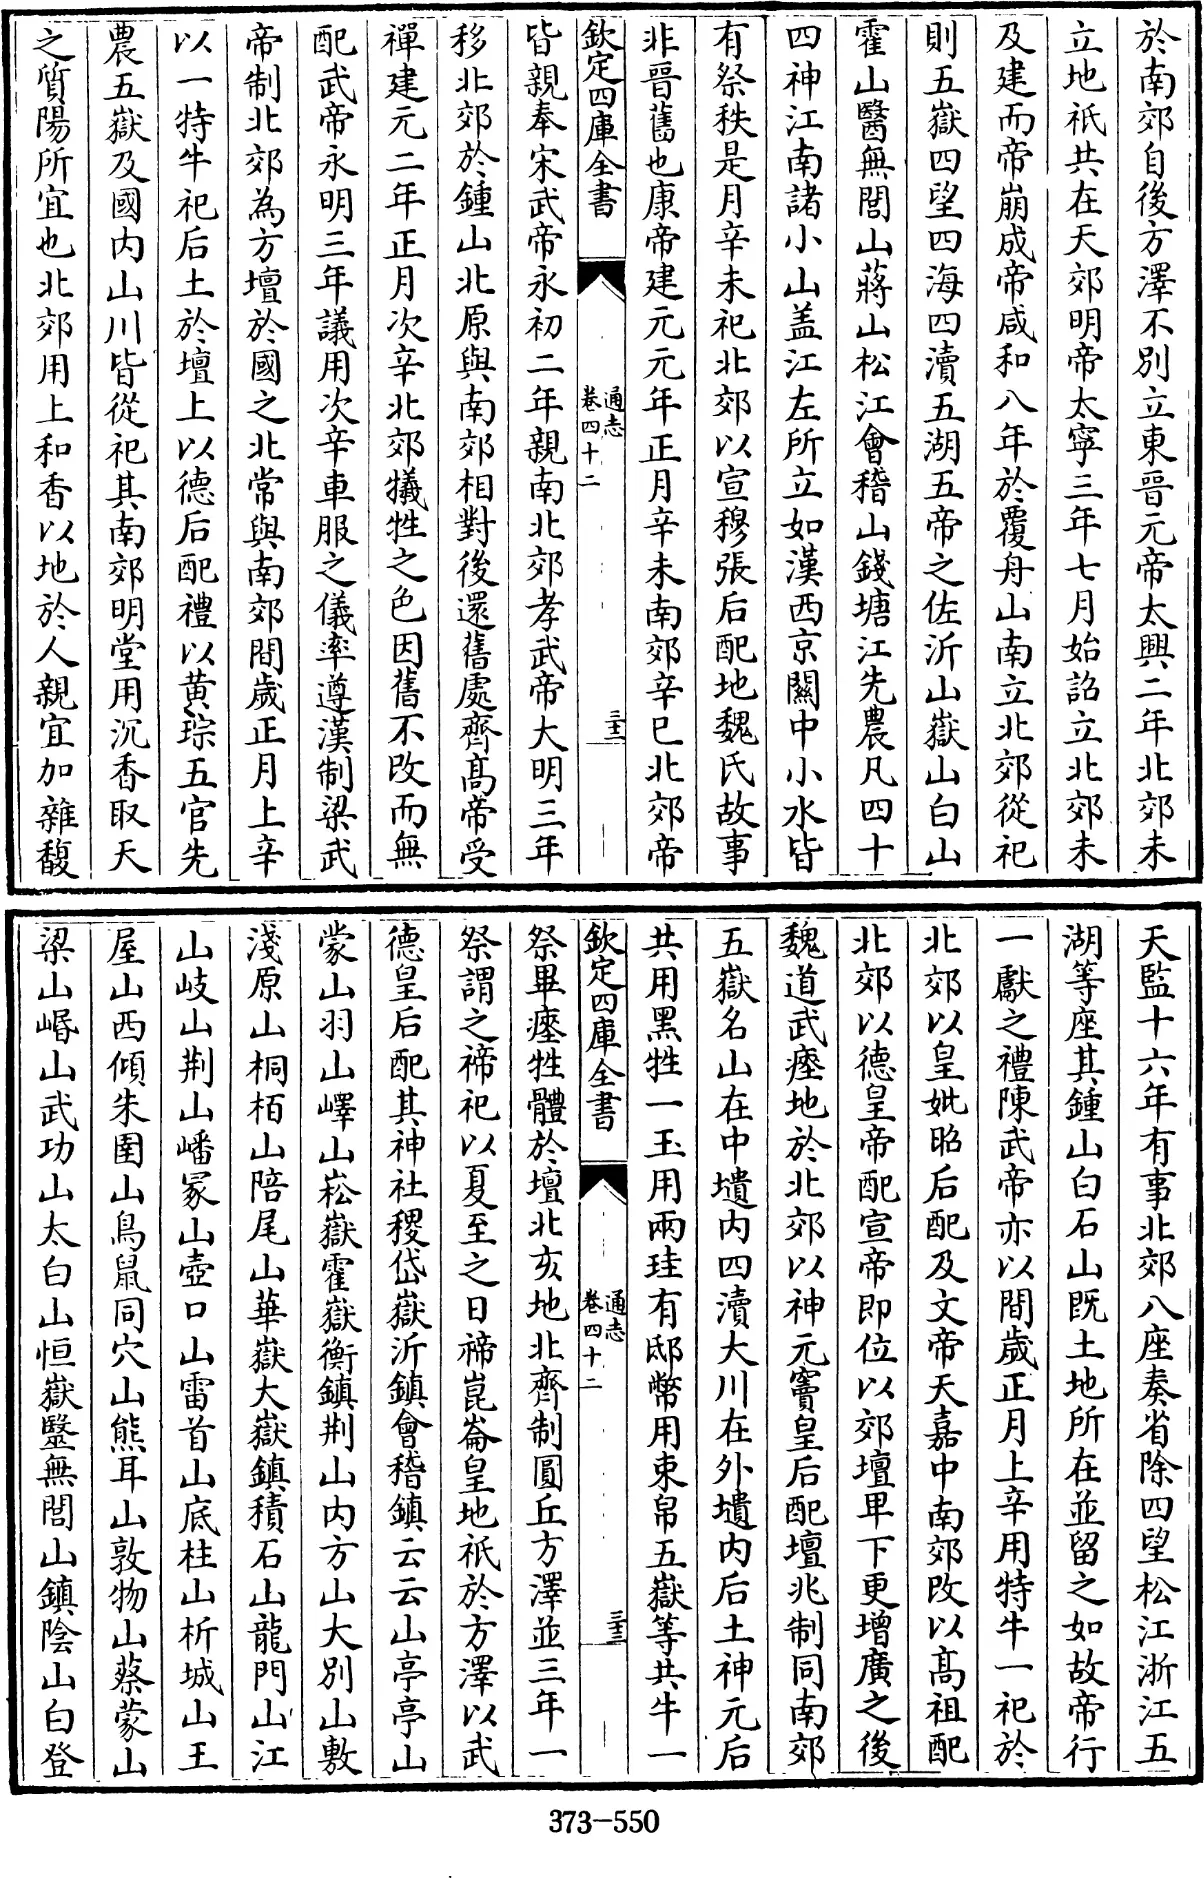 於南郊自後方澤不別立東晉元帝太興二年北郊未
立地祇共在天郊明帝太寧三年七月始詔立北郊未
及建而帝崩成帝咸和八年於覆舟山南立北郊從祀
則五嶽四望四海四瀆五湖五帝之佐沂山嶽山白山
霍山醫無閭山蔣山松江會稽山錢塘江先農凡四十
四神江南諸小山盖江左所立如漢西京關中小水皆
有祭秩是月辛未祀北郊以宣穆張后配地魏氏故事
非晉舊也康帝建元元年正月辛未南郊辛巳北郊帝
欽定四庫全書 通志 卷四十二 三十二
皆親奉宋武帝永初二年親南北郊孝武帝大明三年
移北郊於鍾山北原與南郊相對後還舊處齊髙帝受
禪建元二年正月次辛北郊犧牲之色因舊不改而無
配武帝永明三年議用次辛車服之儀率遵漢制梁武
帝制北郊為方壇於國之北常與南郊間歲正月上辛
以一特牛祀后土於壇上以德后配禮以黄琮五官先
農五嶽及國内山川皆從祀其南郊明堂用沉香取天
之質陽所宜也北郊用上和香以地於人親宜加雜馥
天監十六年有事北郊八座奏省除四望松江浙江五
湖等座其鍾山白石山既土地所在並留之如故帝行
一獻之禮陳武帝亦以間歲正月上辛用特牛一祀於
北郊以皇妣昭后配及文帝天嘉中南郊改以髙祖配
北郊以德皇帝配宣帝即位以郊壇卑下更增廣之後
魏道武瘞地於北郊以神元竇皇后配壇兆制同南郊
五嶽名山在中壝内四瀆大川在外壝内后土神元后
共用黑牲一玉用兩珪有邸幣用束帛五嶽等共牛一
欽定四庫全書 通志 卷四十二 三十三
祭畢瘞牲體於壇北亥地北齊制圓丘方澤並三年一
祭謂之禘祀以夏至之日禘崑崙皇地祇於方澤以武
德皇后配其神社稷岱嶽沂鎮會稽鎮云云山亭亭山
蒙山羽山嶧山崧嶽霍嶽衡鎮荆山内方山大別山敷
淺原山桐栢山陪尾山華嶽大嶽鎮積石山龍門山江
山岐山荆山嶓冢山壺口山雷首山底柱山析城山王
屋山西傾朱圉山鳥鼠同穴山熊耳山敦物山蔡蒙山
梁山㟭山武功山太白山恒嶽毉無閭山鎮陰山白登
373-550